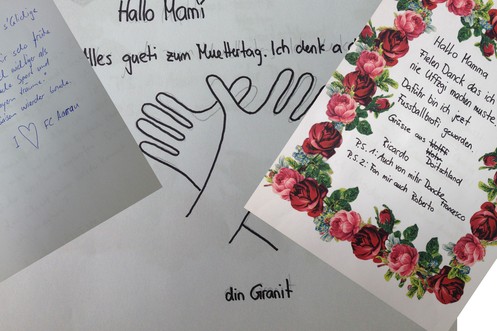 s'Gliiche
sehr frühe
wichtiger als
Sport und
wieder
I ♡ FC Aarau
Hallo Mami
Alles gueti zum Muettertag. Ich denk a
din Granit
Hallo Mamma
Fielen Danck das ich
nie Uffzgi machen muste
Daführ bin ich jezt
Fussballbrofi geworden.
Grüsse aus
Doitschland
Ricardo
P.S. 1: Auch von mihr Dancke, Francesco
P.S. 2: Fon mir auch Roberto